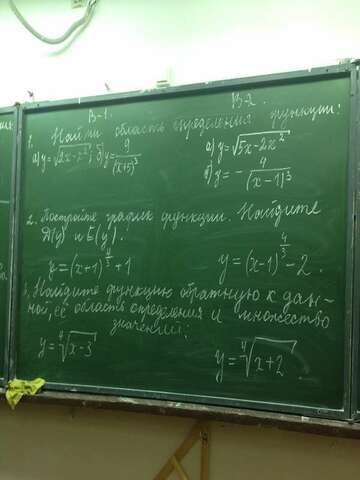 В-1. В-2.
1. Найти область определения функции:
а) y=√2x-x²; б) y=9/(x+5)³ а) y=√5x-2x²
б) y=-4/(x-1)³
2. Постройте график функции. Найдите
D(y) и E(y).
y=(x+1)^ +1 y=(x-1)^4/3-2.
3. Найдите функцию обратную к дан-
ной, её область определения и множество
значений:
y=⁴√x-3 y=⁴√x+2.